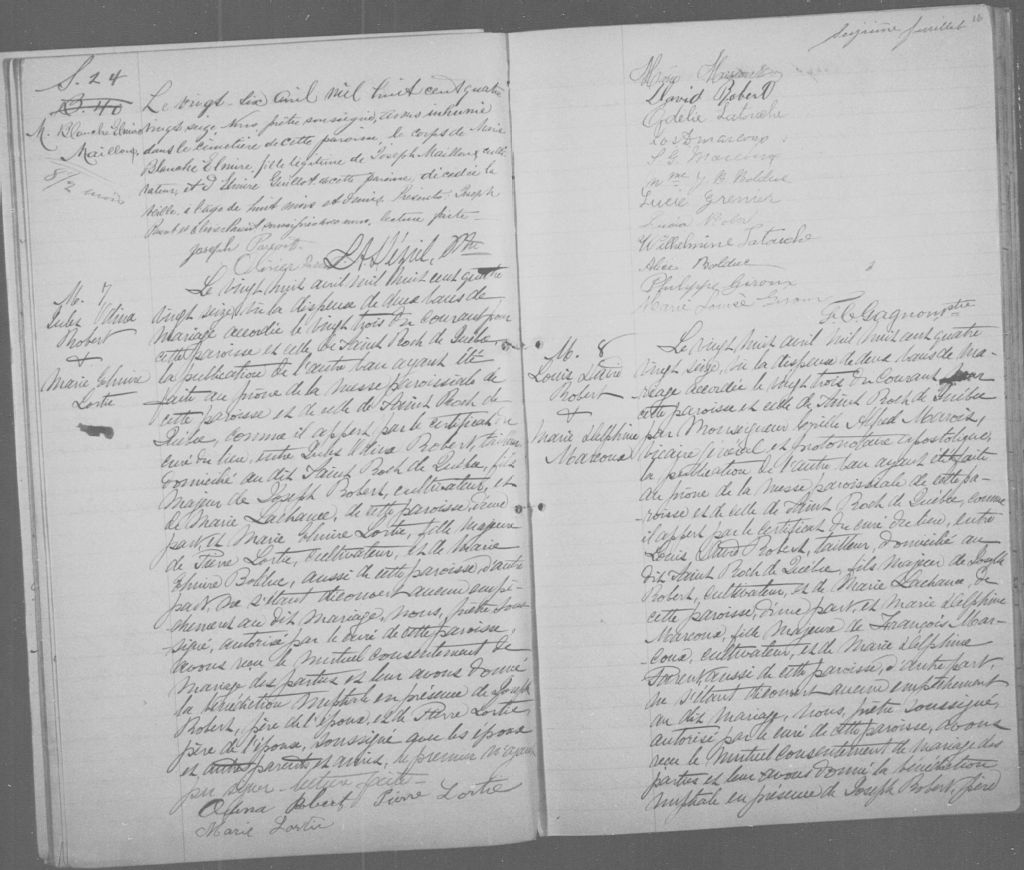 S. 24
B. 40
M. Blanche Elmire
Mailloux
8½ mois
Le vingt-six avril mil huit cent quatre
vingt seize, nous prêtre soussigné, avons inhumé
dans le cimetière de cette paroisse, le corps de Marie
Blanche Elmire, fille légitime de Joseph Mailloux, culti-
vateur, et d'Elmire Guillot de cette paroisse, décédée la
veille, à l'âge de huit mois et demi. Présents Joseph
soussignés avec nous, lecture faite
Joseph
Ptre
M. 7
Jules Odina
Robert
&
Marie Elmire
Lortie
Le vingt huit avril mil huit cent quatre
vingt seize, vu la dispense de deux bans de
mariage accordée le vingt trois du courant pour
cette paroisse et celle de Saint Roch de Québec,
la publication de l'autre ban ayant été
faite au prône de la messe paroissiale de
cette paroisse et de celle de Saint Roch de
Québec, comme il appert par le certificat du
curé du lieu, entre Jules Odina Robert,
domicilié au dit Saint Roch de Québec, fils
majeur de Joseph Robert, cultivateur, et
de Marie Lachance, de cette paroisse, d'une
part, et Marie Elmire Lortie, fille majeure
de Pierre Lortie, cultivateur, et de Marie
Elmire Bolduc, aussi de cette paroisse d'autre
part, ne s'étant découvert aucun empê-
chement au dit mariage, nous, prêtre sous-
signé, autorisé par le curé de cette paroisse,
avons reçu le mutuel consentement de
mariage des parties et leur avons donné
la bénédiction nuptiale en présence de Joseph
Robert, père de l'époux, et de Pierre Lortie,
père de l'épouse, soussigné avec les époux
et autres parents et amis, le premier n'ayant
pu signer. lecture faite
Odina Robert Pierre Lortie
Marie Lortie
Seizième feuillet
16
David Robert
Odelie Latouche
Mme J B Bolduc
Lucie Grenier
Wilhelmine Latouche
Alice Bolduc
Philippe Giroux
Marie Louise Giroux
F. C. Gagnon ptre
M. 8
Louis David
Robert
&
Marie Delphine
Marcoux
Le vingt huit avril mil huit cent quatre
vingt seize, vu la dispense de deux bans de ma-
riage accordée le vingt trois du courant pour
cette paroisse et celle de Saint Roch de Québec
par Monseigneur Cyrille Alfred Marois,
vicaire général et protonotaire apostolique,
la publication de l'autre ban ayant été faite
au prône de la messe paroissiale de cette pa-
roisse et de celle de Saint Roch de Québec, comme
il appert par le certificat du curé du lieu, entre
Louis David Robert, tailleur, domicilié au
dit Saint Roch de Québec, fils majeur de Joseph
Robert, cultivateur, et de Marie Lachance, de
cette paroisse, d'une part, et Marie Delphine
Marcoux, fille majeure de François Mar-
coux, cultivateur, et de Marie Delphine
Parent, aussi de cette paroisse, d'autre part,
ne s'étant découvert aucun empêchement
au dit mariage, nous, prêtre soussigné,
autorisé par le curé de cette paroisse, avons
reçu le mutuel consentement de mariage des
parties et leur avons donné la bénédiction
nuptiale en présence de Joseph Robert, père